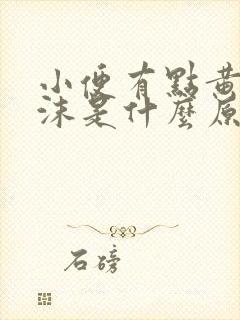 小便有點黄
沫是什麼原
石磅